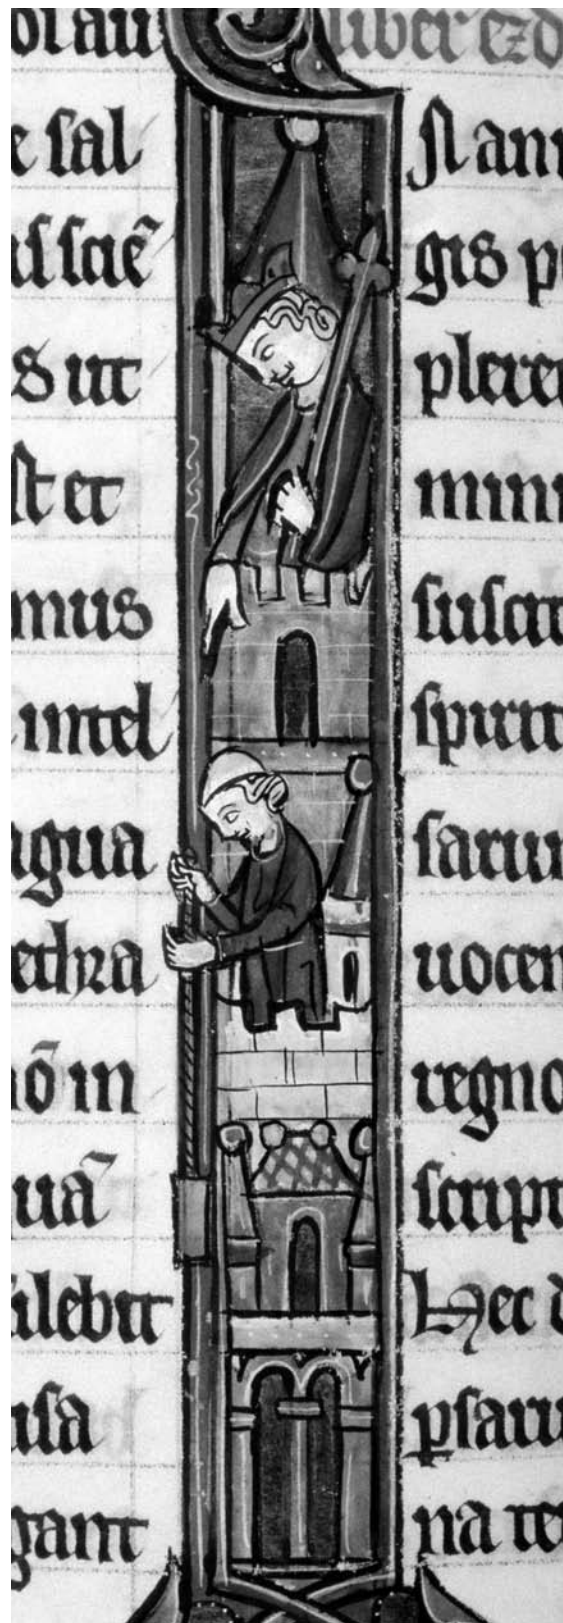 e sal
is sciē
s ut
st et
mus
intel
gua
ethra
ō in
uā
silebit
usa
gant
liber ezd
N ann
gis p
plere
mini
suscit
spirit
sarum
uocen
regno
script
Hec d
ꝑsaru
na te